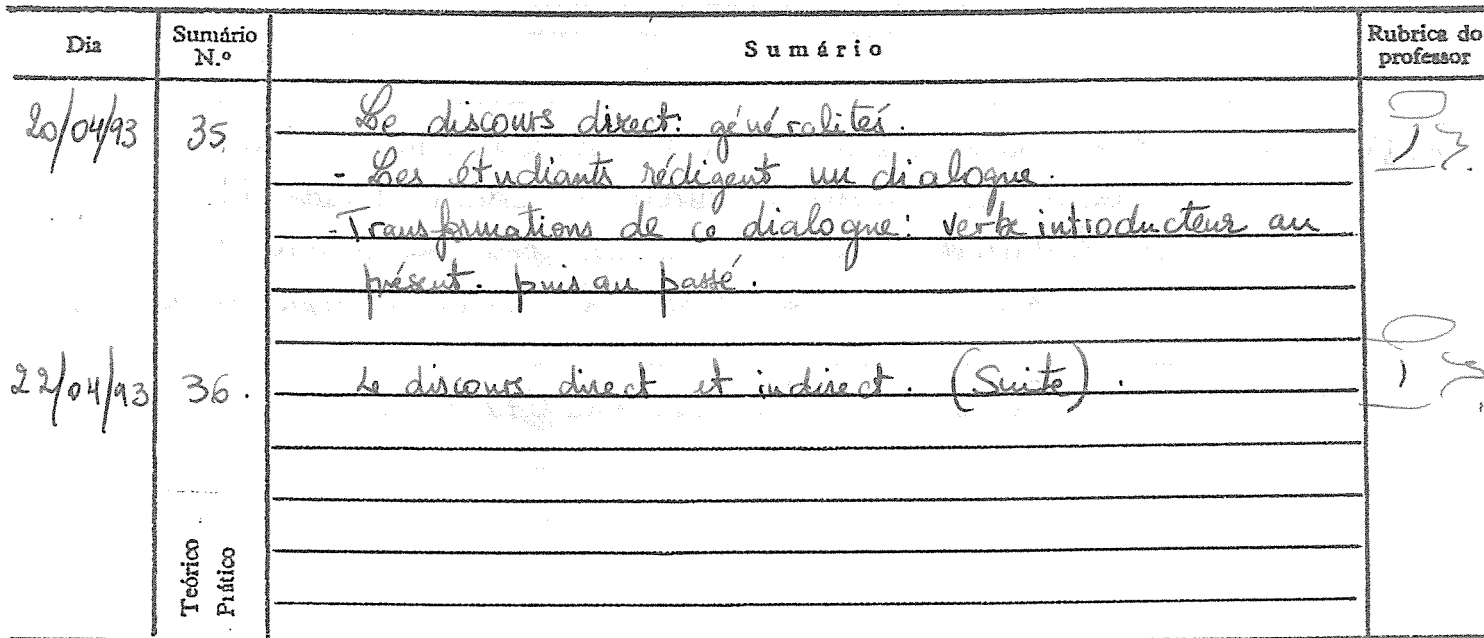 Dia Sumário N.º Sumário Rubrica do professor
20/04/93 35 Le discours direct: généralités.
- Les étudiants rédigent un dialogue.
- Transformations de ce dialogue: verbe introducteur au
présent. puis au passé.
22/04/93 36. Le discours direct et indirect. (Suite).
Teórico
Prático